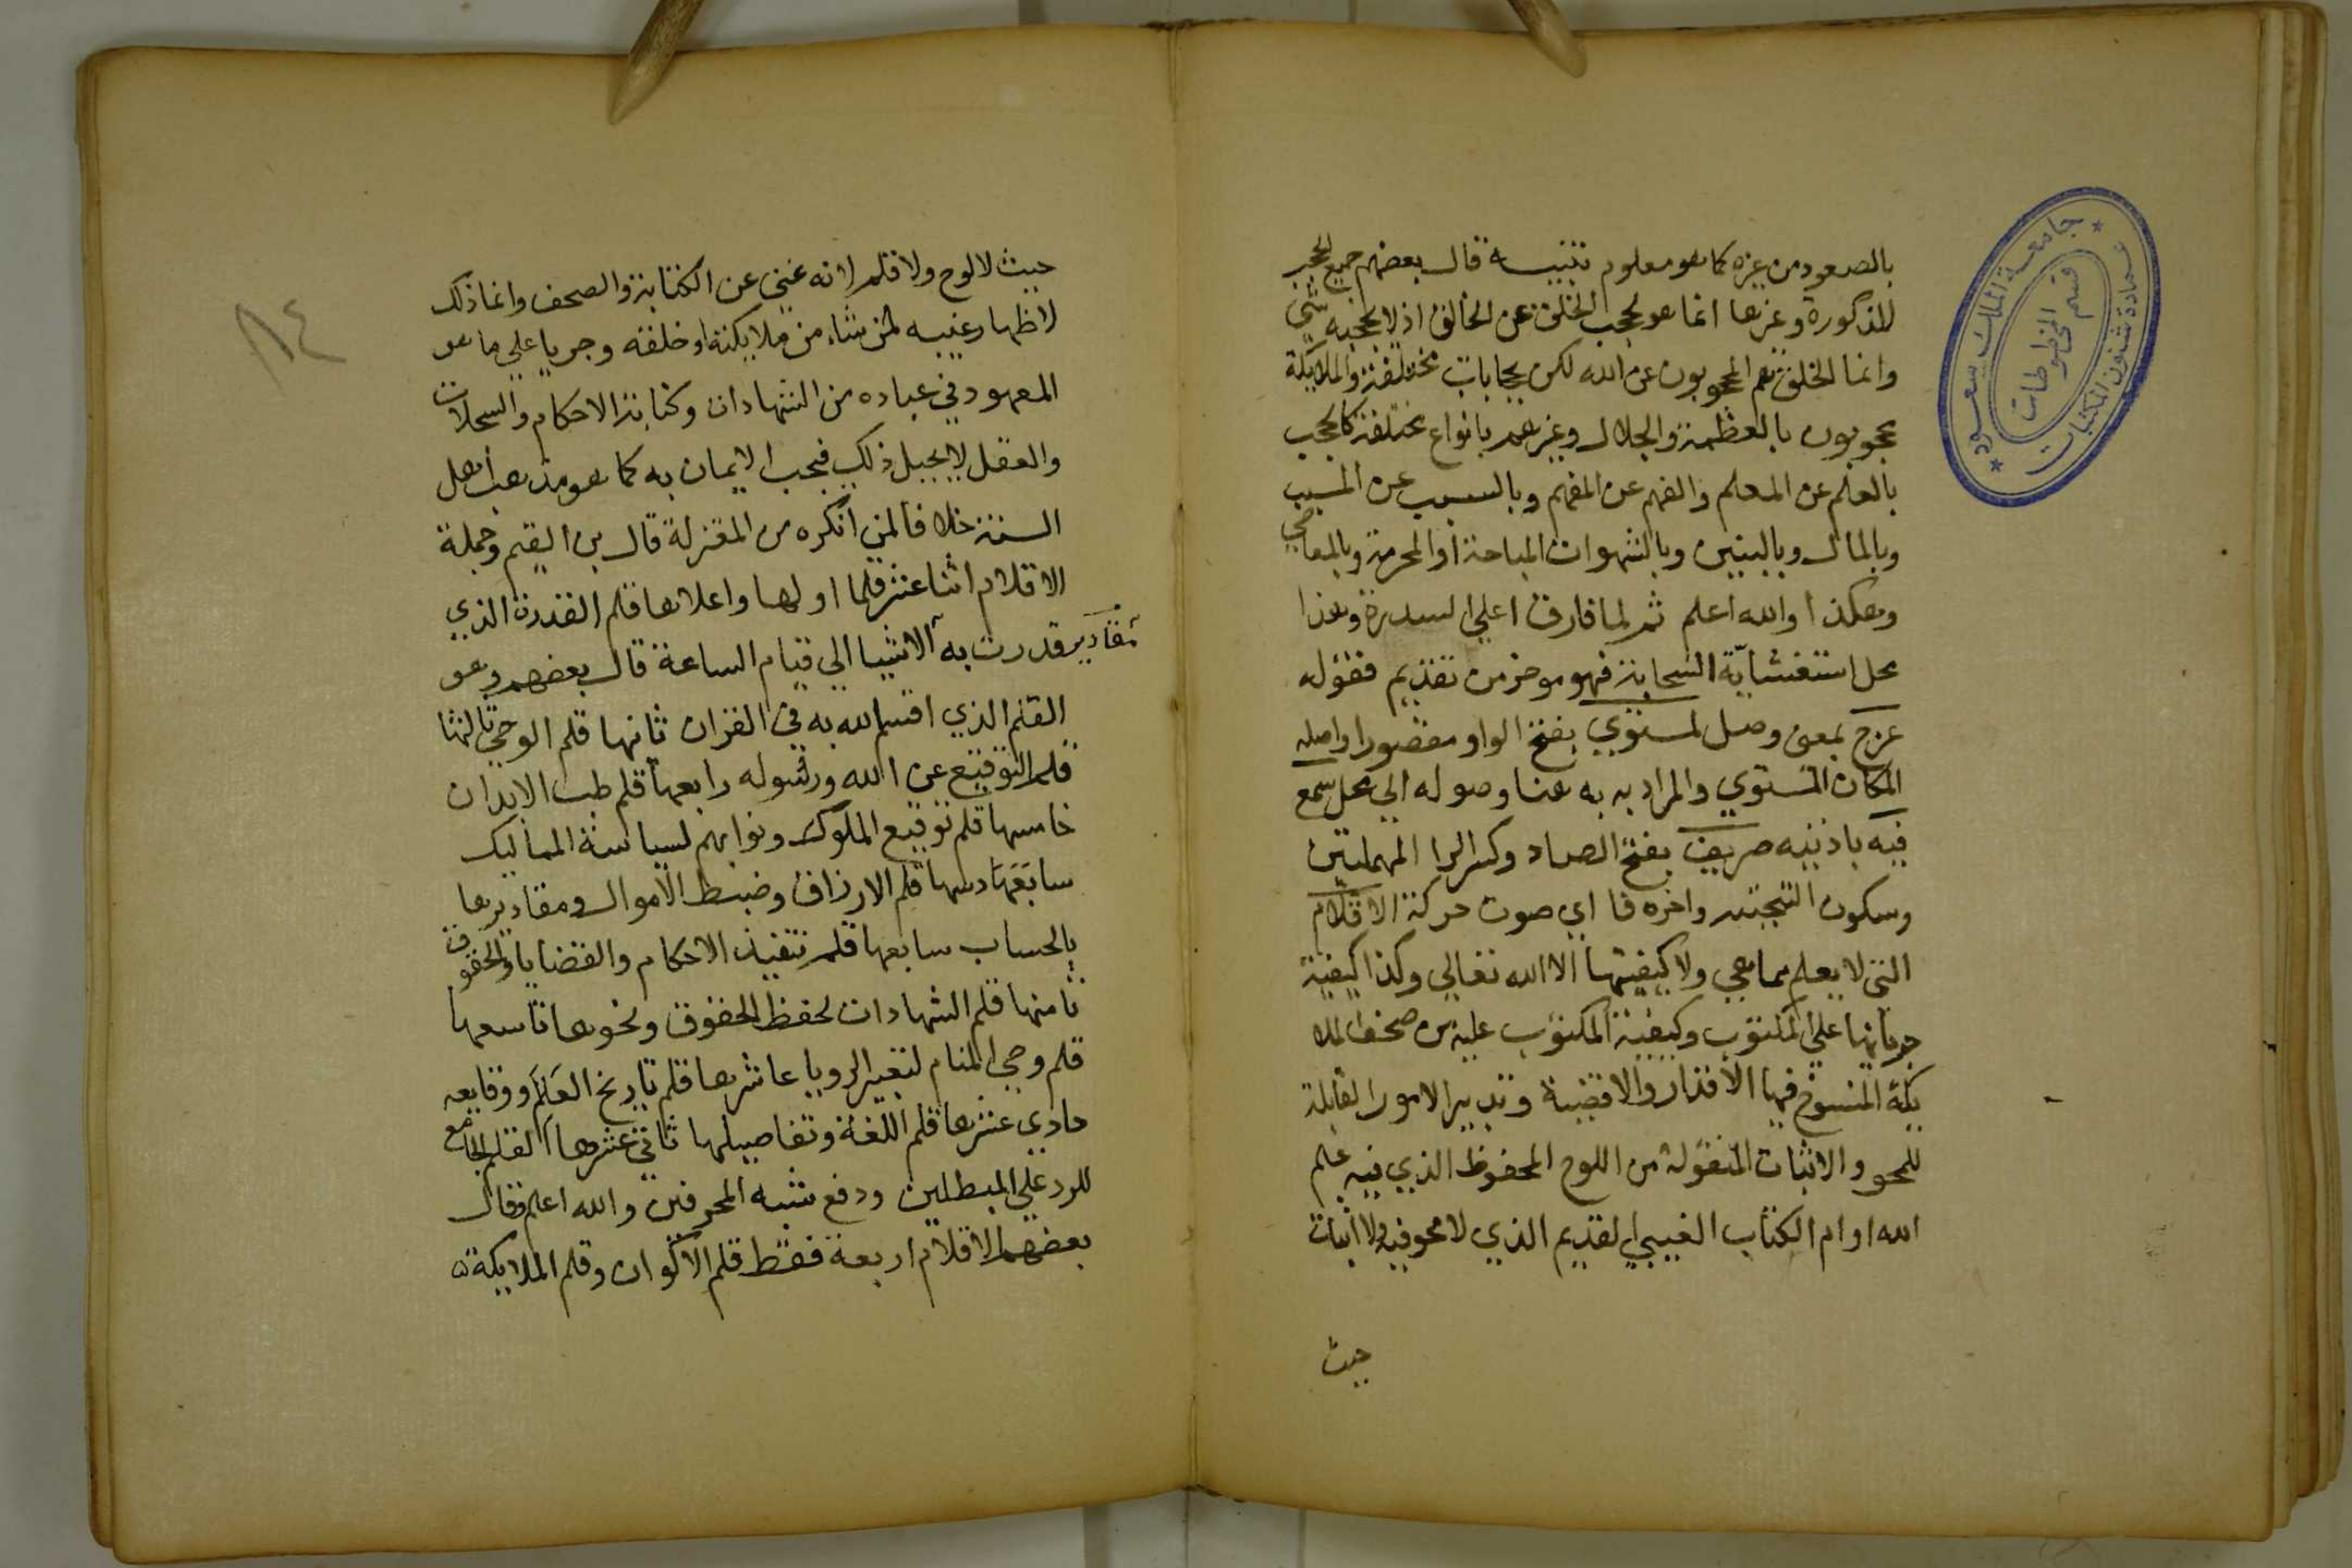 بالصعود من غيره كما هو معلوم تنبيه قال بعضهم جميع الحجب
المذكورة وغيرها انما هو لحجب الخلق عن الخالق اذ لا يحجبه شي
وانما الخلق هم المحجوبون عن الله لكن بحجابات مختلفة والملايكة
محجوبون بالعظمة والجلال وغيرهم بانواع مختلفة كالحجب
بالعلم عن المعلم والفهم عن المفهم وبالسبب عن المسبب
وبالمال وبالبنين وبالشهوات المباحة او المحرمة وبالمعاصي
وهكذا والله اعلم ثم لما فارق اعلي السدرة وهذا
محل استغشائه السحابة فهو موخر من تقديم فقوله
عرج بمعني وصل لمستوي بفتح الواو مقصورا واصله
المكان المستوي والمراد به به هنا وصوله الي محل سمع
فيه باذنيه صريف بفتح الصاد وكسر الرا المهملتين
وسكون التحتيه واخره فا اي صوت حركة الاقلام
التي لا يعلم ما هي ولا كيفيتها الا الله تعالي وكذا كيفية
جريانها علي المكتوب وكيفية المكتوب عليه من صحف الملا
يكة المنسوخ فيها الاقدار والاقضية وتدبير الامور القابلة
للمحو والاثبات المنقولة من اللوح المحفوظ الذي فيه علم
الله او ام الكتاب الغيبي القديم الذي لا محو فيه ولا اثبات
حيث
جامعة الملك سعود
عمادة شئون المكتبات
قسم المخطوطات
٨٤
حيث لا لوح ولا قلم لانه غني عن الكتابة والصحف وانما ذلك
لاظهار غيبه لمن شاء من ملايكته او خلقه وجريا علي ما هو
المعهود في عباده من الشهادات وكتابة الاحكام والسجلات
والعقل لا يحيل ذلك فيجب الايمان به كما هو مذهب اهل
السنة خلافا لمن انكره من المعتزلة قال بن القيم وجملة
الاقلام اثنا عشر قلما اولها واعلاها قلم القدرة الذي
قدرت به مقادير الاشيا الي قيام الساعة قال بعضهم وهو
القلم الذي اقسم الله به في القران ثانيها قلم الوحي ثالثها
قلم التوقيع عن الله ورسوله رابعها قلم طب الابدان
خامسها قلم توقيع الملوك ونوابهم لسياسة الممالك
سابعها دسها قلم الارزاق وضبط الاموال ومقاديرها
بالحساب سابعها قلم تنفيذ الاحكام والقضايا والحقوق
ثامنها قلم الشهادات لحفظ الحقوق ونحوها تاسعها
قلم وحي المنام لتعبير الرويا عاشرها قلم تاريخ العالم ووقايعه
حادي عشرها قلم اللغة وتفاصيلها ثاني عشرها القلم الجامع
للرد علي المبطلين ودفع شبه المحرفين والله اعلم وقال
بعضهم الاقلام اربعة فقط قلم الاكوان وقلم الملايكة